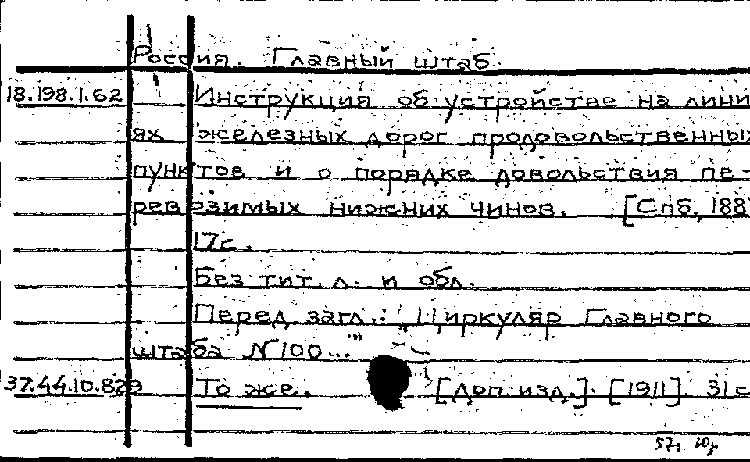 Россия. Главный штаб.
18.198.1.62 Инструкция об устройстве на лини
ях железных дорог продовольственных
пунктов и о порядке довольствия пе-
ревозимых нижних чинов. [Спб, 188
17с.
Без тит. л. и обл.
Перед загл.: "Циркуляр Главного
штаба N100..."
37.44.10.829 То же. [Доп. изд.]. [1911]. 31с